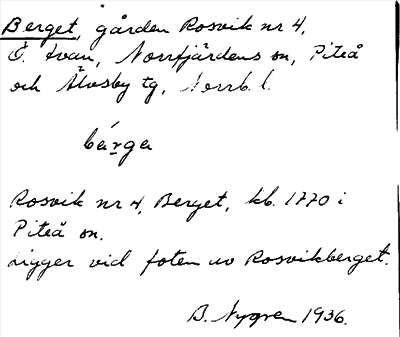 Berget, gården Rosvik nr 4,
Ö. tvän, Norrfjärdens sn, Piteå
och Älvsby tg, Norrb. l.
bárga
Rosvik nr 4, Berget, kb. 1770 i
Piteå sn.
Ligger vid foten av Rosvikberget.
B. Nygren 1936.